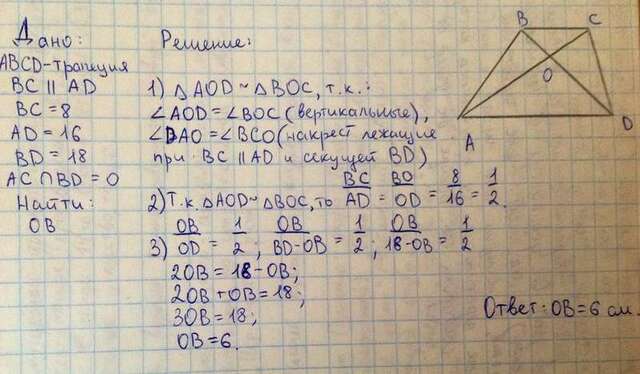 Дано:
ABCD-трапеция
BC || AD
BC = 8
AD = 16
BD = 18
AC ∩ BD = O
Найти:
OB
Решение:
1) △AOD ~ △BOC, т.к.:
∠AOD = ∠BOC (вертикальные),
∠DAO = ∠BCO (накрест лежащие
при BC || AD и секущей BD)
2) Т.к. △AOD ~ △BOC, то BC/AD = BO/OD = 8/16 = 1/2.
3) OB/OD = 1/2; OB/BD-OB = 1/2; OB/18-OB = 1/2
2OB = 18-OB;
2OB+OB = 18;
3OB = 18;
OB = 6.
B C
O
A D
Ответ: OB = 6 см.